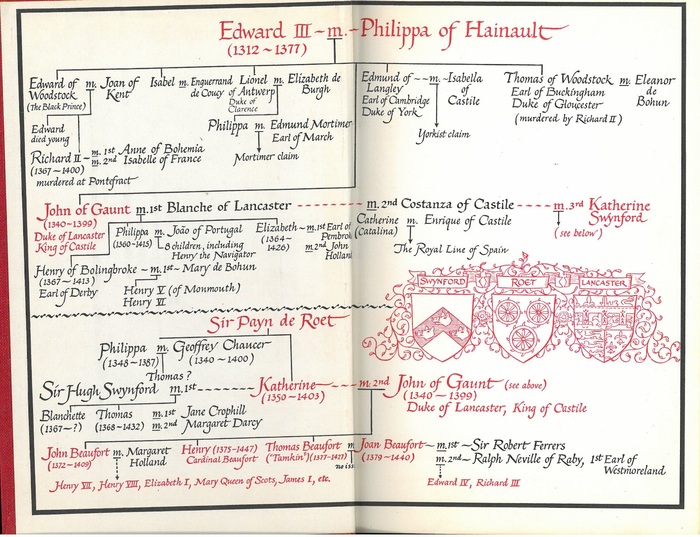 Edward III ~ m. ~ Philippa of Hainault
(1312 ~ 1377)
Edward of Woodstock m. Joan of Kent
(The Black Prince)
Isabel m. Enguerrand de Coucy
Lionel of Antwerp m. Elizabeth de Burgh
Duke of Clarence
Edmund of Langley ~ ~ m. ~ Isabella of Castile
Earl of Cambridge
Duke of York
Thomas of Woodstock m. Eleanor de Bohun
Earl of Buckingham
Duke of Gloucester
(murdered by Richard II)
Edward died young
Philippa m. Edmund Mortimer
Earl of March
Mortimer claim
Yorkist claim
Richard II ~ m. 1st Anne of Bohemia
(1367 ~ 1400) m. 2nd Isabelle of France
murdered at Pontefract
John of Gaunt m. 1st Blanche of Lancaster m. 2nd Costanza of Castile m. 3rd Katherine Swynford
(1340 ~ 1399)
Duke of Lancaster
King of Castile
(see below)
Philippa m. João of Portugal
(1360-1415) 8 children, including
Henry the Navigator
Elizabeth ~ m. 1st Earl of
(1364 ~ 1426)
m. 2nd John
Catherine m. Enrique of Castile
(Catalina)
The Royal Line of Spain
Henry of Bolingbroke ~ m. 1st ~ Mary de Bohun
(1367 ~ 1413)
Earl of Derby
Henry V (of Monmouth)
Henry VI
SWYNFORD
ROET
LANCASTER
Sir Payn de Roet
Philippa m. Geoffrey Chaucer
(1348 ~ 1387) (1340 ~ 1400)
Thomas ?
Sir Hugh Swynford m. 1st Katherine m. 2nd John of Gaunt (see above)
(1350 ~ 1403)
(1340 ~ 1399)
Duke of Lancaster, King of Castile
Blanchette Thomas m. 1st Jane Crophill
(1367 ~ ?) (1368 ~ 1432) m. 2nd Margaret Darcy
John Beaufort m. Margaret Holland
(1372 ~ 1409)
Henry (1375 ~ 1447)
Cardinal Beaufort
Thomas Beaufort m
("Tamkin") (1377 ~ 1427)
Joan Beaufort ~ m. 1st ~ Sir Robert Ferrers
(1379 ~ 1440) m. 2nd ~ Ralph Neville of Raby, 1st Earl of Westmoreland
Henry VII, Henry VIII, Elizabeth I, Mary Queen of Scots, James I, etc.
Edward IV, Richard III